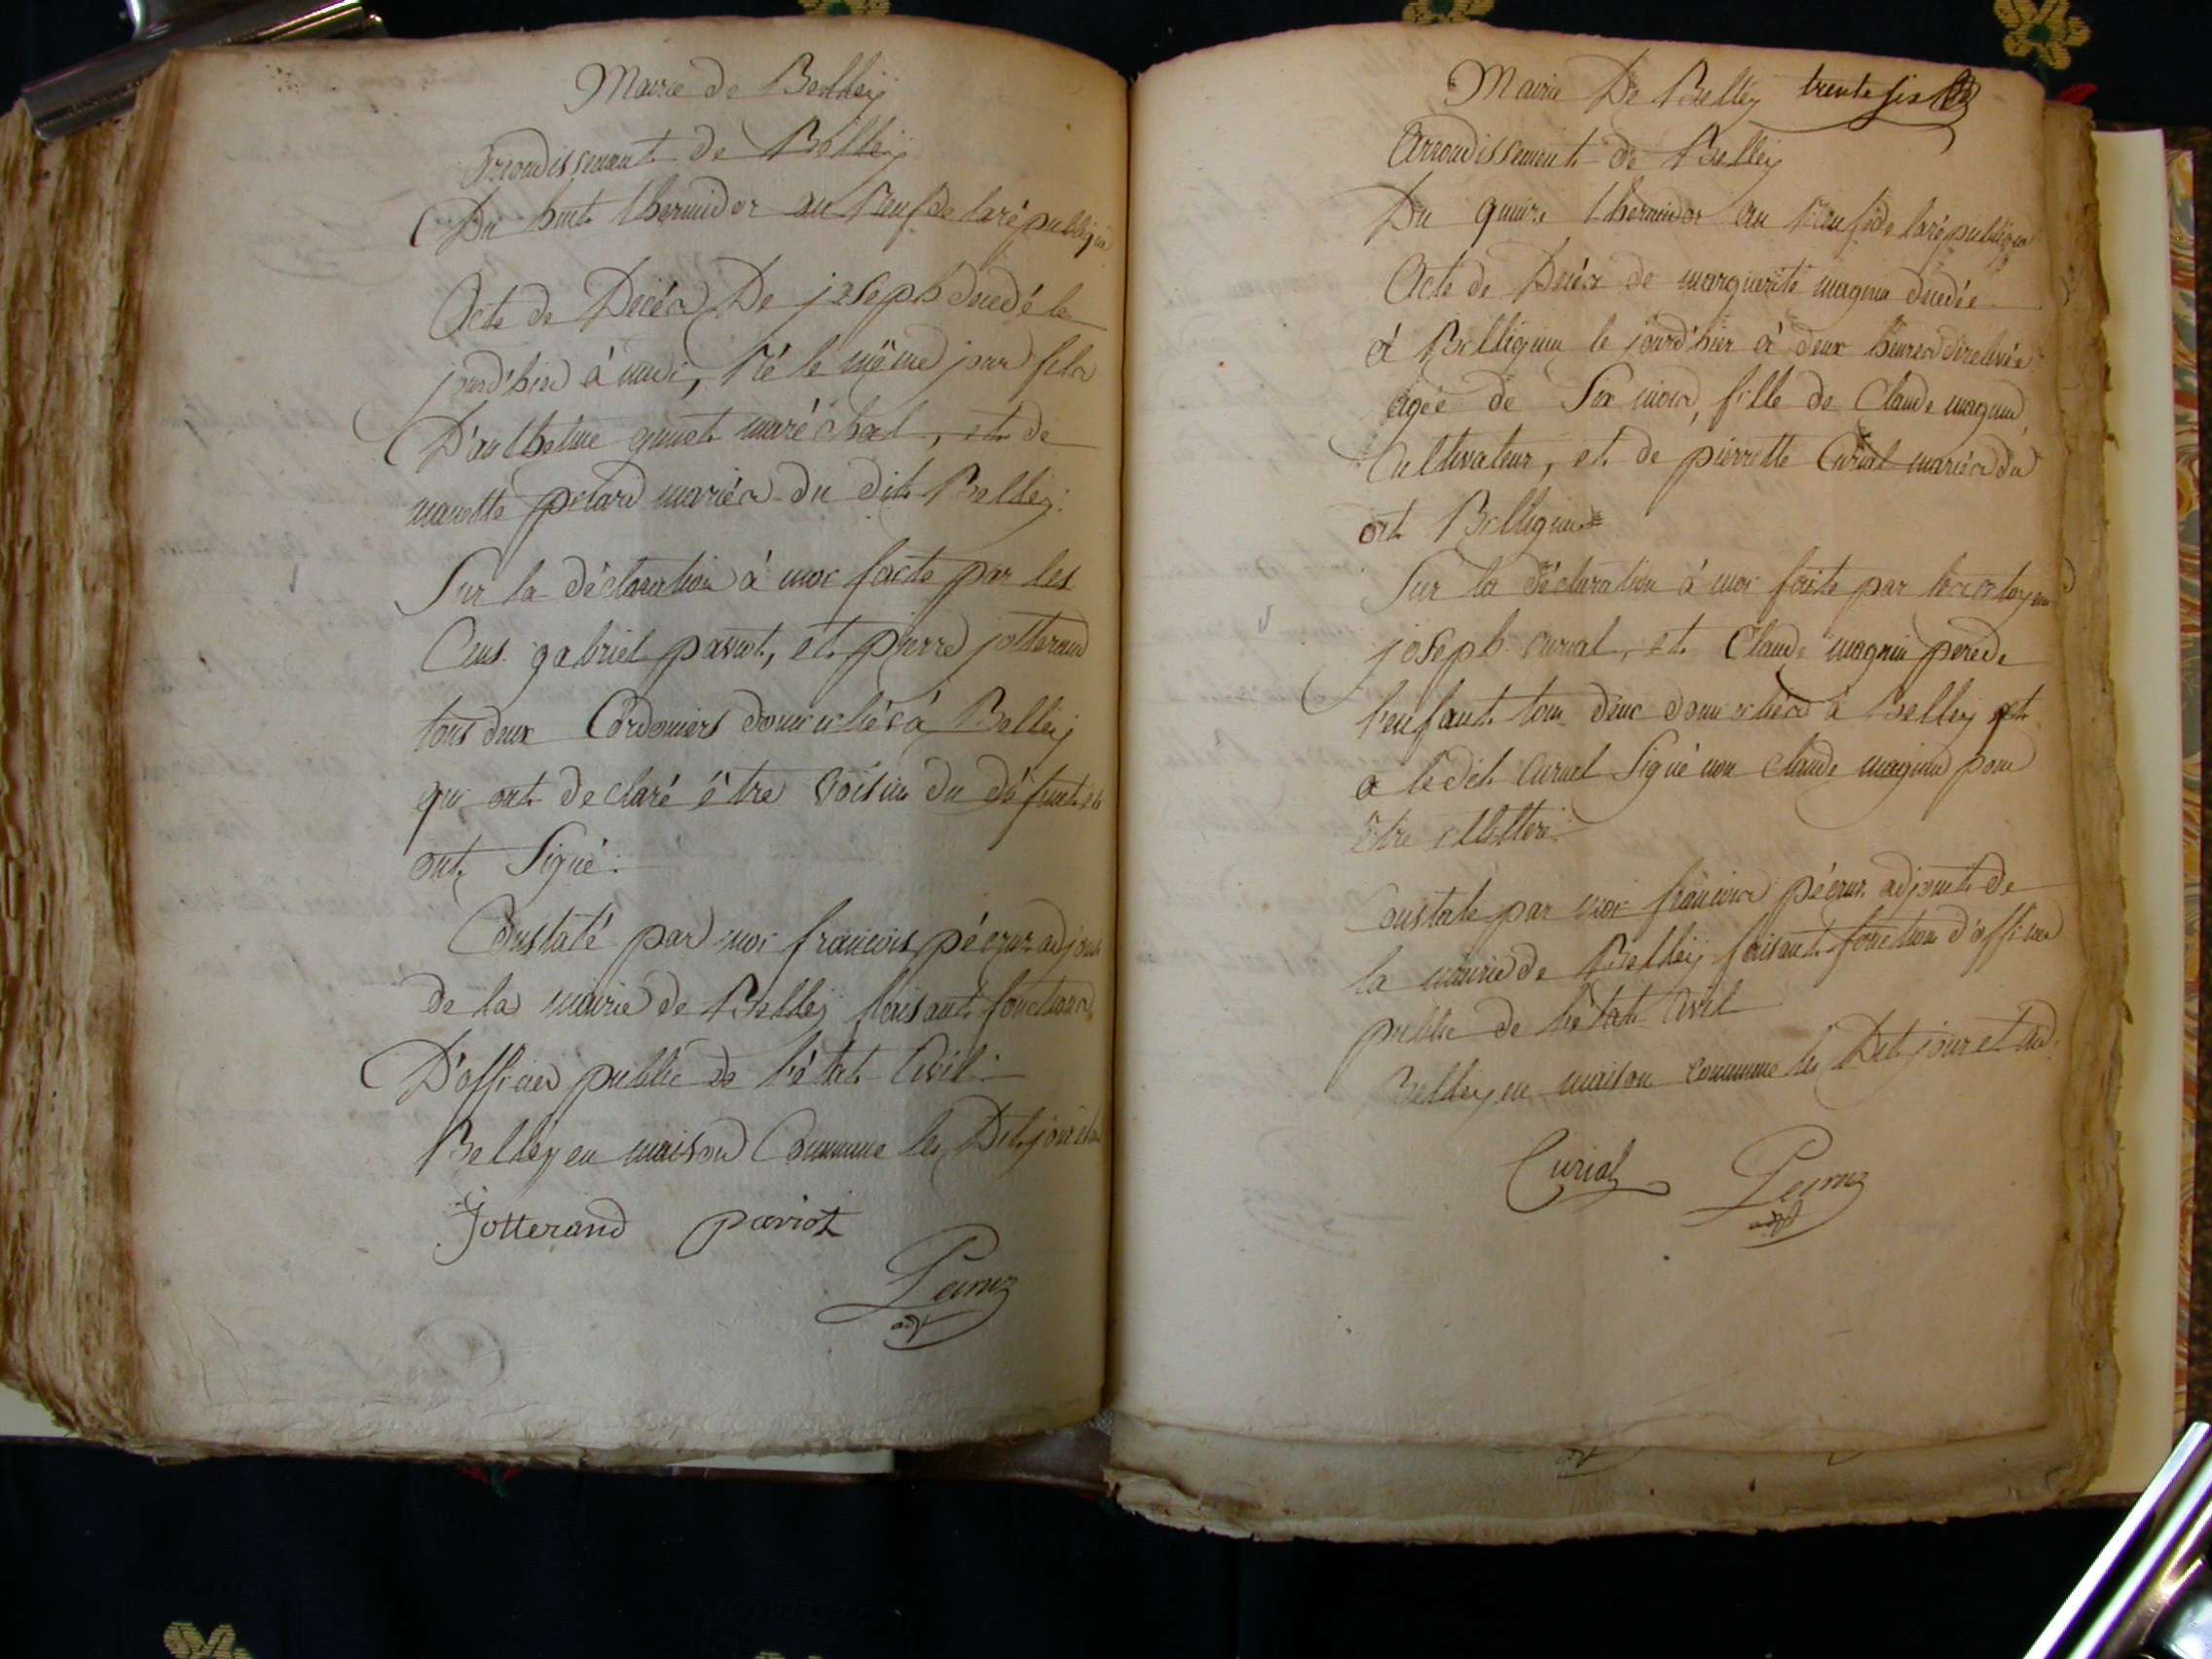 Mairie de Belleÿ
Arrondissement de Belleÿ
Du huit thermidor an neuf de la république
Acte de Décés De joseph décédé le
jourd'hier à midi, Né le même jour fils
D'anthelme maréchal, et de
mariés du dit Belleÿ.
Sur la déclaration à moi faite par les
Cens. gabriel paviot, et pierre jotterand
tous deux Cordoniers domiciliés à Belleÿ
qui ont declaré être voisin du défunt et
ont Signé.
Constaté par moi francois pécruz adjoint
de la mairie de Belleÿ faisant fonctions
D'officier public de l'état Civil
Belleÿ en maison Commune les Dit jour et an
Jotterand paviot
Pecruz
adjt
Mairie De Belleÿ trente six
Arrondissement de Belleÿ
Du quinze thermidor an neuf de la république
Acte de Décés de marguerite magnin décédée
à Billignin le jourd'hier à deux heures de relevée
agée de Six mois, fille de Claude magnin
Cultivateur, et de pierrette Curial mariés du
dit Billignin
Sur la déclaration à moi faite par les citoyens
joseph curial, et Claude magnin pere de
l'enfant tous deux domiciliés à Belleÿ et
a le dit curial Signé non Claude magnin pour
être illétteré.
Constaté par moi francois pécruz adjoint de
la mairie de Belleÿ faisant fonction d'officier
public de l'état Civil
Belleÿ en maison commune les Dit jour et an.
Curial Pecruz
adjt